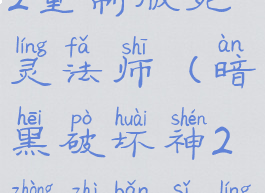 2重制版死
líng fǎ shī àn
灵法师（暗
hēi pò huài shén
黑破坏神2
zhòng zhì bǎn sǐ líng